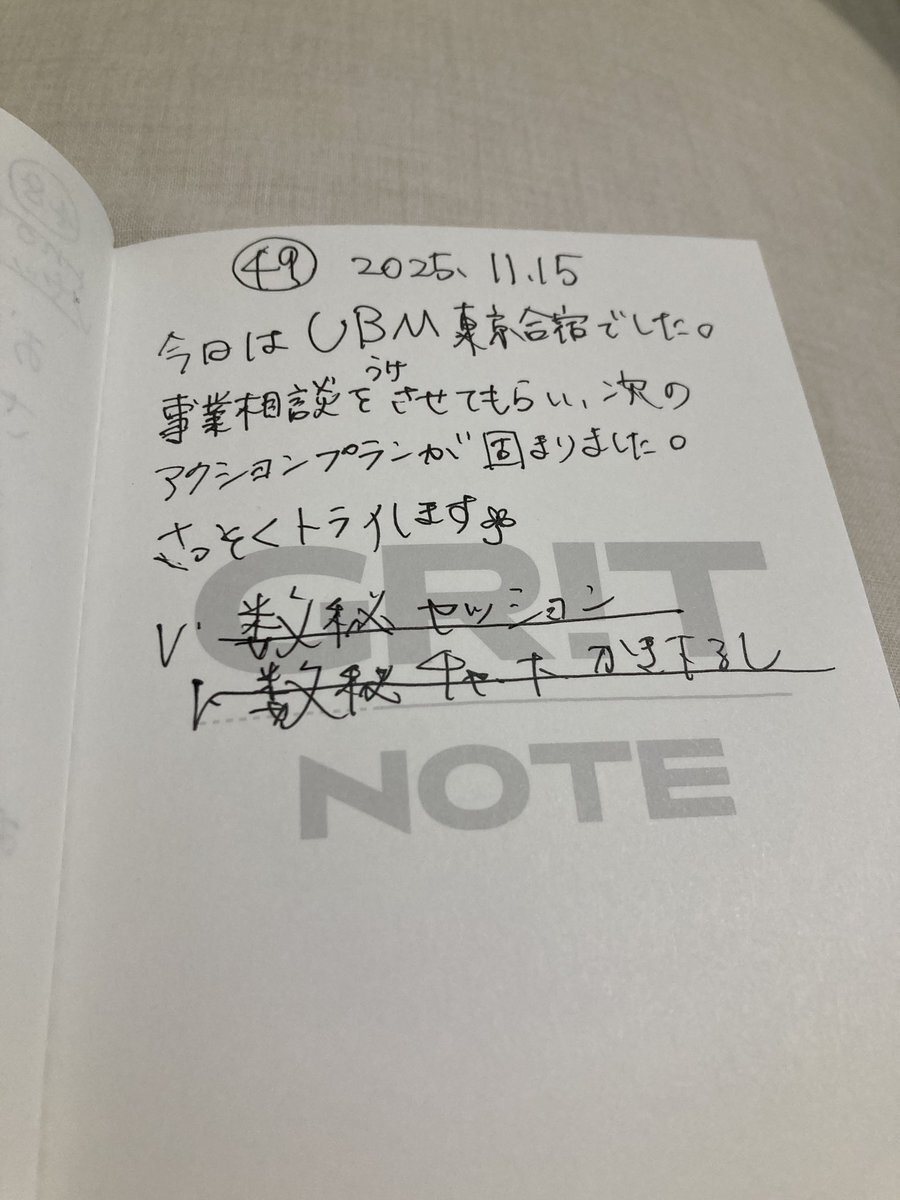 ㊾ 2025. 11.15
今日はUBM東京合宿でした。
うけ
事業相談をさせてもらい、次の
アクションプランが固まりました。
さっそくトライします
GRIT
レ 数秘 セッション
レ 数秘 チャート かき下ろし
NOTE